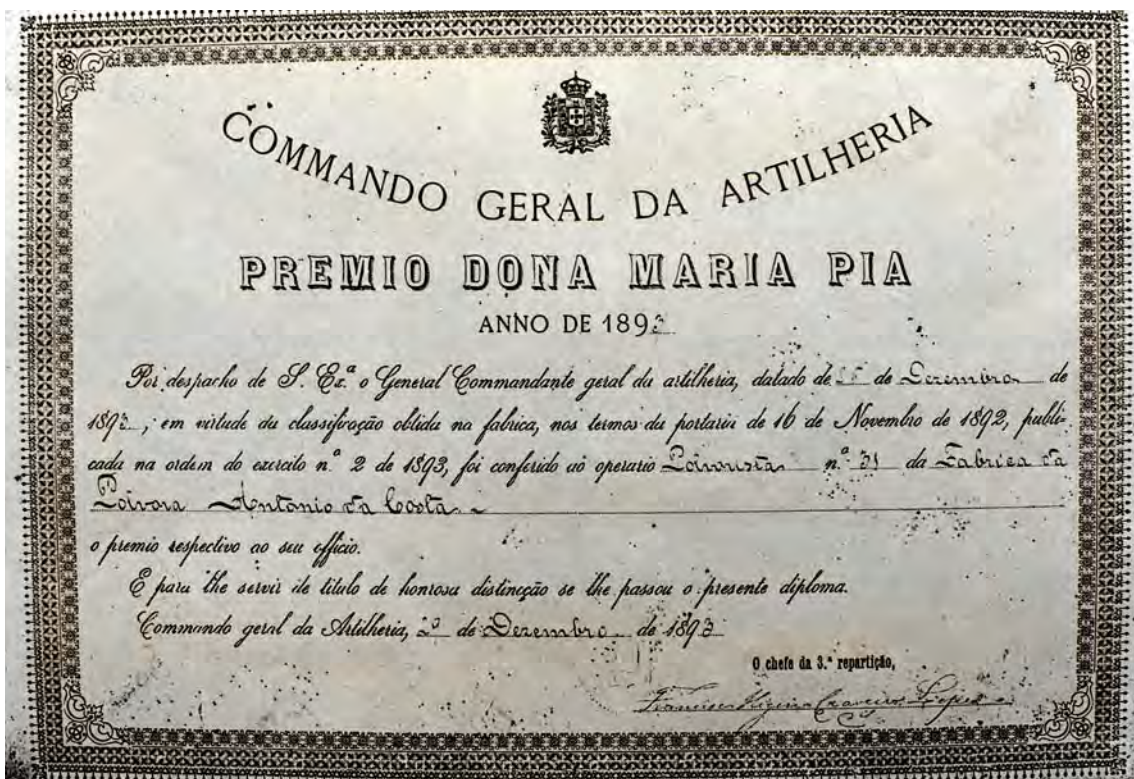 COMMANDO GERAL DA ARTILHERIA
PREMIO DONA MARIA PIA
ANNO DE 1893
Por despacho de S. Ex.ª o General Commandante geral da artilheria, datado de de Dezembro de
1893, em virtude da classificação obtida na fabrica, nos termos da portaria de 16 de Novembro de 1892, publi-
cada na ordem do exercito n.º 2 de 1893, foi conferido ao operario Polvorista n.º 31 da Fabrica da
Polvora Antonio da Costa
o premio respectivo ao seu officio.
E para lhe servir de titulo de honrosa distincção se lhe passou o presente diploma.
Commando geral da Artilheria, de Dezembro de 1893
O chefe da 3.ª repartição,
Francisco Hygino Craveiro Lopes